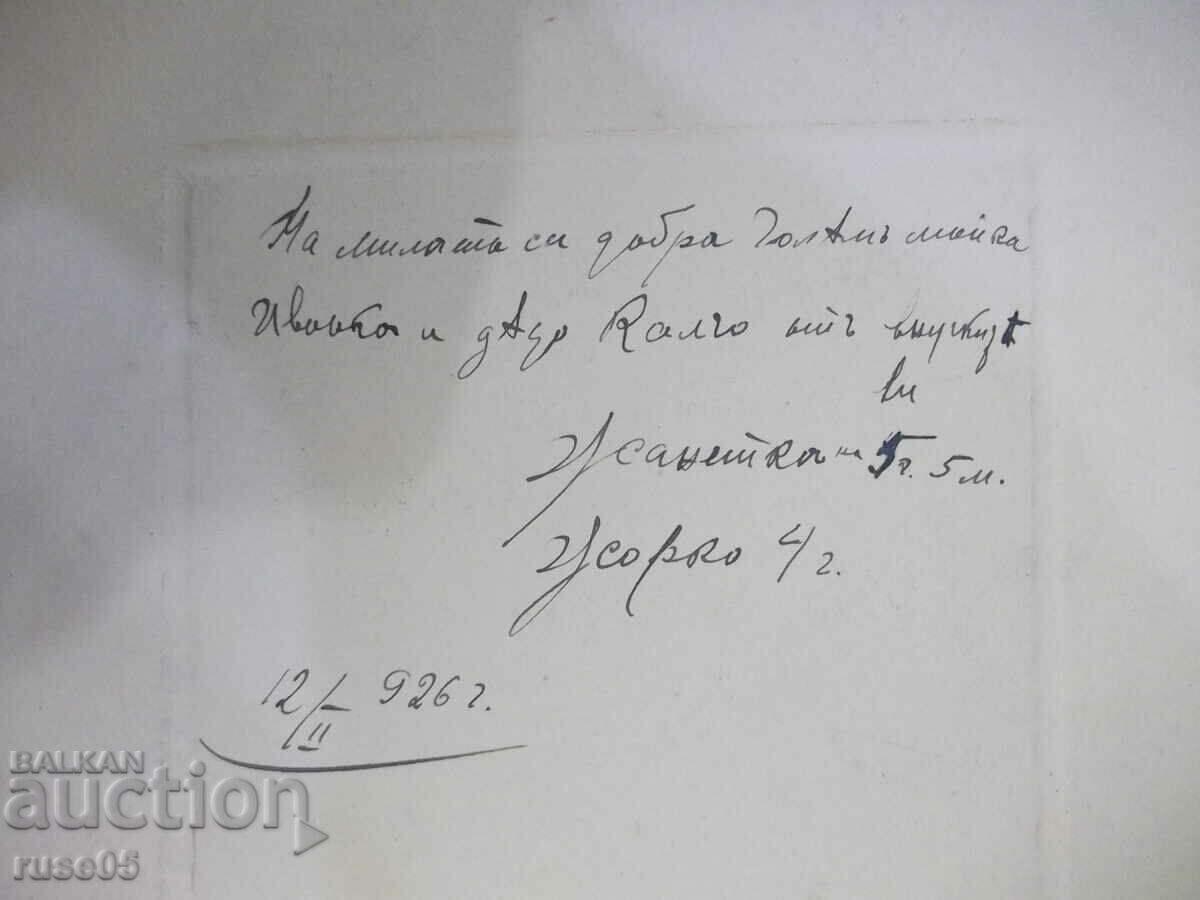 На милата си добра Голѣмъ майка
Иванка и дѣдо Калчо отъ внуцитѣ
ви
Жанетка на 5 г. 5 м.
Жорко 4 г.
12/II 926 г.
BALKAN
auction
ruse05